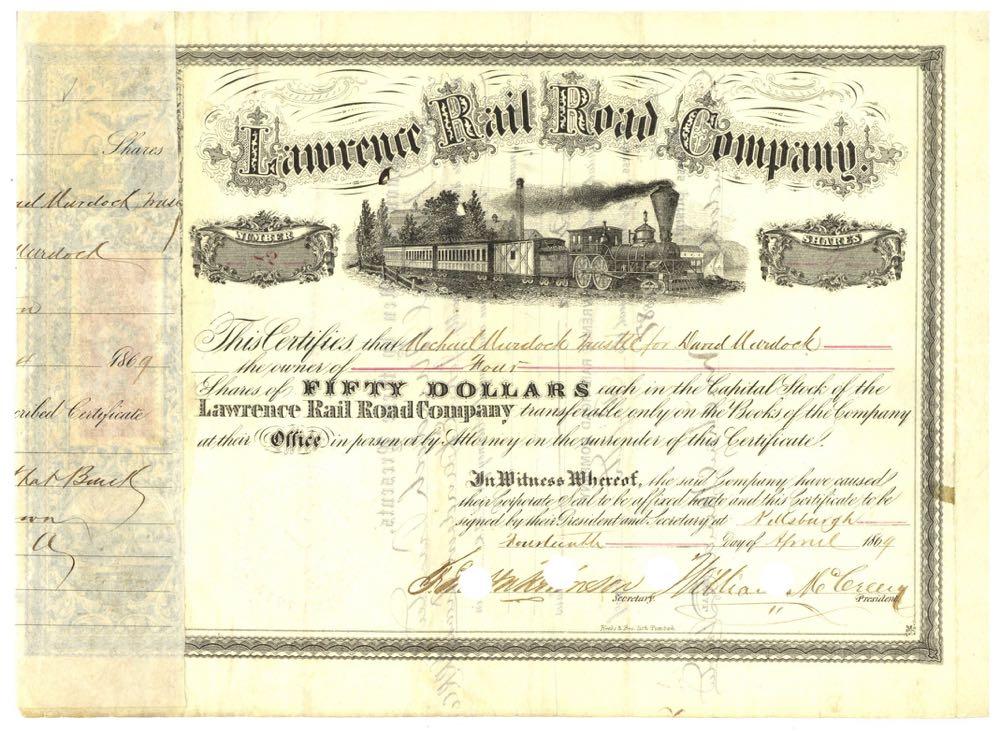 Lawrence Rail Road Company.
NUMBER
2
SHARES
This Certifies that Michael Murdock trustee for David Murdock
the owner of Four
Shares of FIFTY DOLLARS each in the Capital Stock of the
Lawrence Rail Road Company transferable only on the Books of the Company
at their Office in person or by Attorney on the surrender of this Certificate.
In Witness Whereof, the said Company have caused
their Corporate Seal to be affixed hereto and this Certificate to be
signed by their President and Secretary at Pittsburgh
Fourteenth Day of April 1869
William McCreery
Secretary.
President
Shares
Murdock
Murdock
1869
Certificate